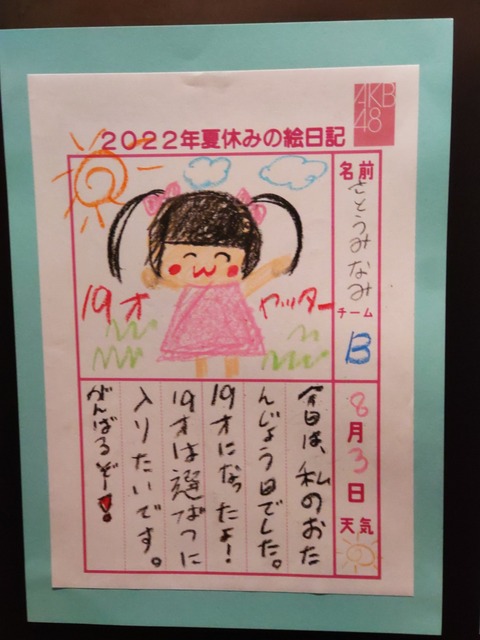 AKB
48
2022年夏休みの絵日記
名前
さとうみなみ
チーム
B
19才
ヤッター
8
月
3
日
天気
今日は、私のおた
んじょう日でした。
19才になったよ！
19才は選ばつに
入りたいです。
がんばるぞー！